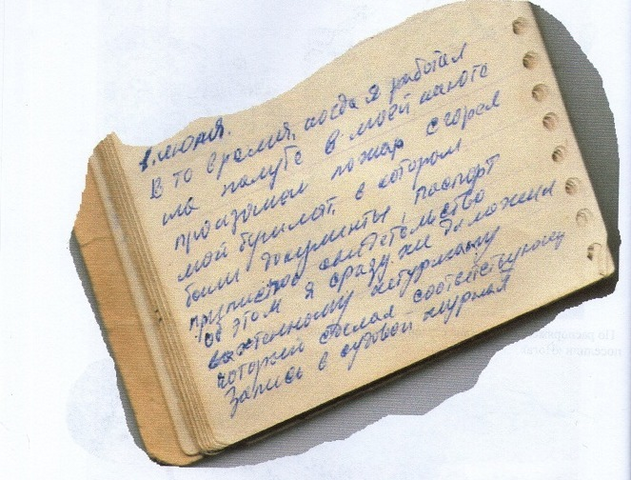 8. июня.
В то время, когда я работал
на палубе в моей каюте
произошел пожар сгорел
мой бушлат, в котором
были документы, паспорт
приписное свидетельство
об этом я сразу же доложил
вахтенному штурману
который сделал соответствующую
запись в судовой журнал